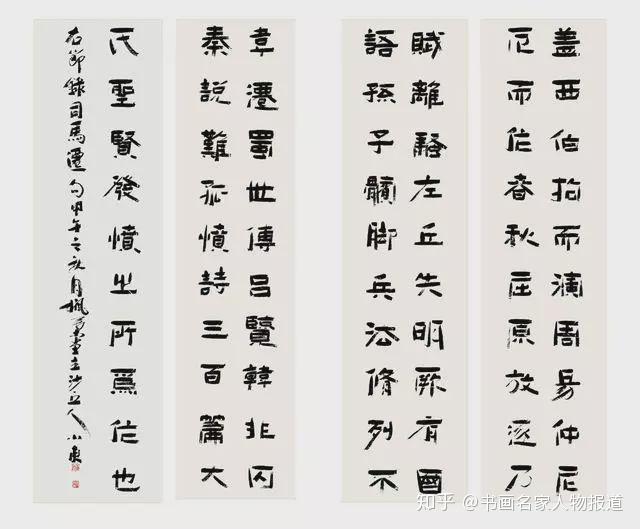 盖西伯拘而演周易仲尼
厄而作春秋屈原放逐乃
賦離騷左丘失明厥有國
語孫子髕脚兵法脩列不
韋遷蜀世傳吕覽韓非囚
秦説難孤憤詩三百篇大
氏聖賢發憤之所爲作也
右節録司馬遷句甲午之秋月
知乎 @书画名家人物报道